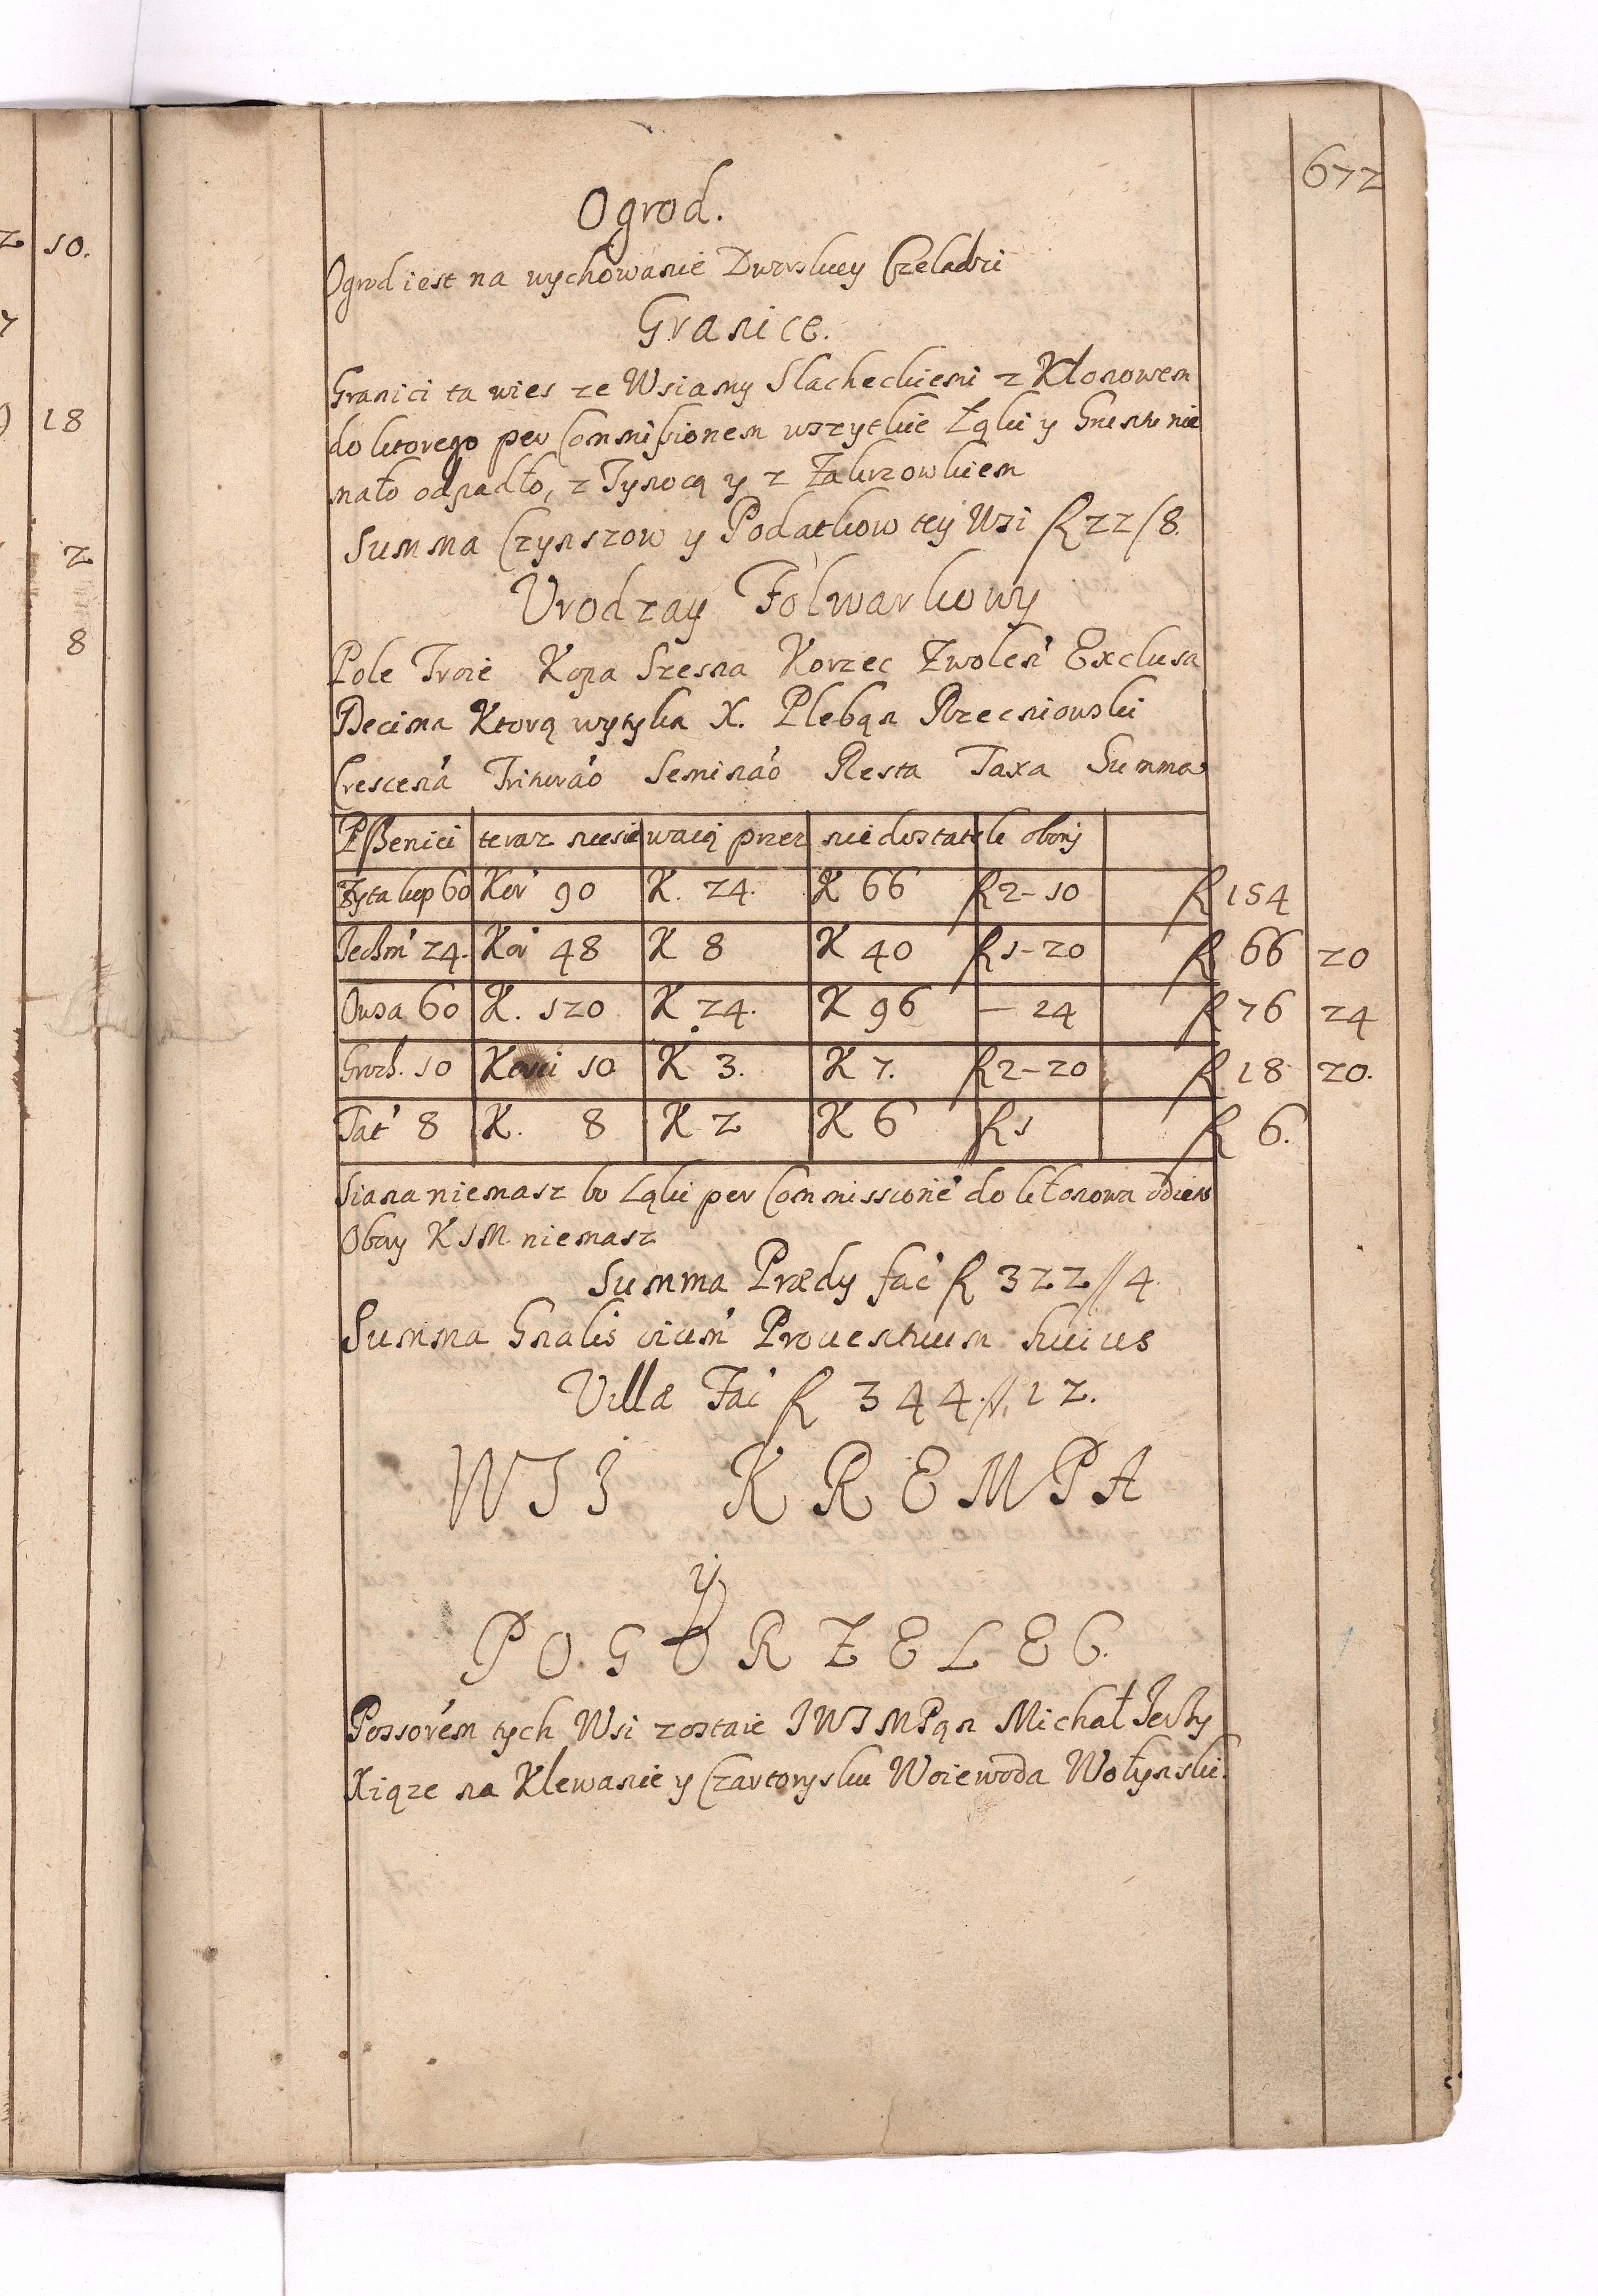 672
Ogrod.
Ogrod iest na wychowanie Dworskiey Czeladzi
Granice.
Granici ta wies ze Wsiamy Slacheckiemi z Kłonowem
do ktorego per Commissionem wszytkie Łąki y Gruntu nie
mało odpadło, z Tynocą y z Zakrzowkiem
Summa Czynszow y Podatkow tey Wsi fl 22/8.
Urodzay Folwarkowy
Pole Troie Kopa Szesna Korzec Zwolen' Exclusa
Decima Ktorą wytyka X. Plebąn Rzeczniowski
Crescen'a Tritura'o Semina'o Resta Taxa Summa
Pßenici teraz niesiewaią przez niedostatek obory
Zyta kop 60 Kor' 90 K. 24. K 66 fl 2-10 fl 154
Jechm' 24. Kor' 48 K 8 K 40 fl 1-20 fl 66 20
Owsa 60 K. 120 K 24. K 96 - 24 fl 76 24
Groch. 10 Korci 10 K 3. K 7. fl 2-20 fl 18 20.
Tat' 8 K. 8 K 2 K 6 fl 1 fl 6.
Siana niemasz bo Łąki per Commissione' do kłonowa
Obory K J M niemasz
Summa Prædy faci' fl 322//4.
Summa Gnalis oium' Proventuum huius
Villæ Fai' fl 344.//.12.
WSI KREMPA
y
POGORZELEC.
Possore'm tych Wsi zostaie JWJMPąn Michał Jerzy
Xiąze na Klewanie y Czartorysku Woiewoda Wołynski.
z 10.
7
18
2
8